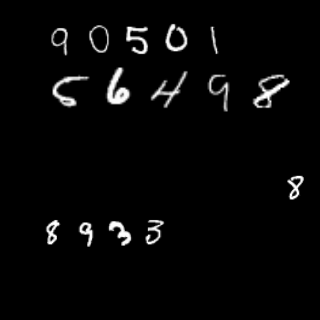 90501
56498
8
8933